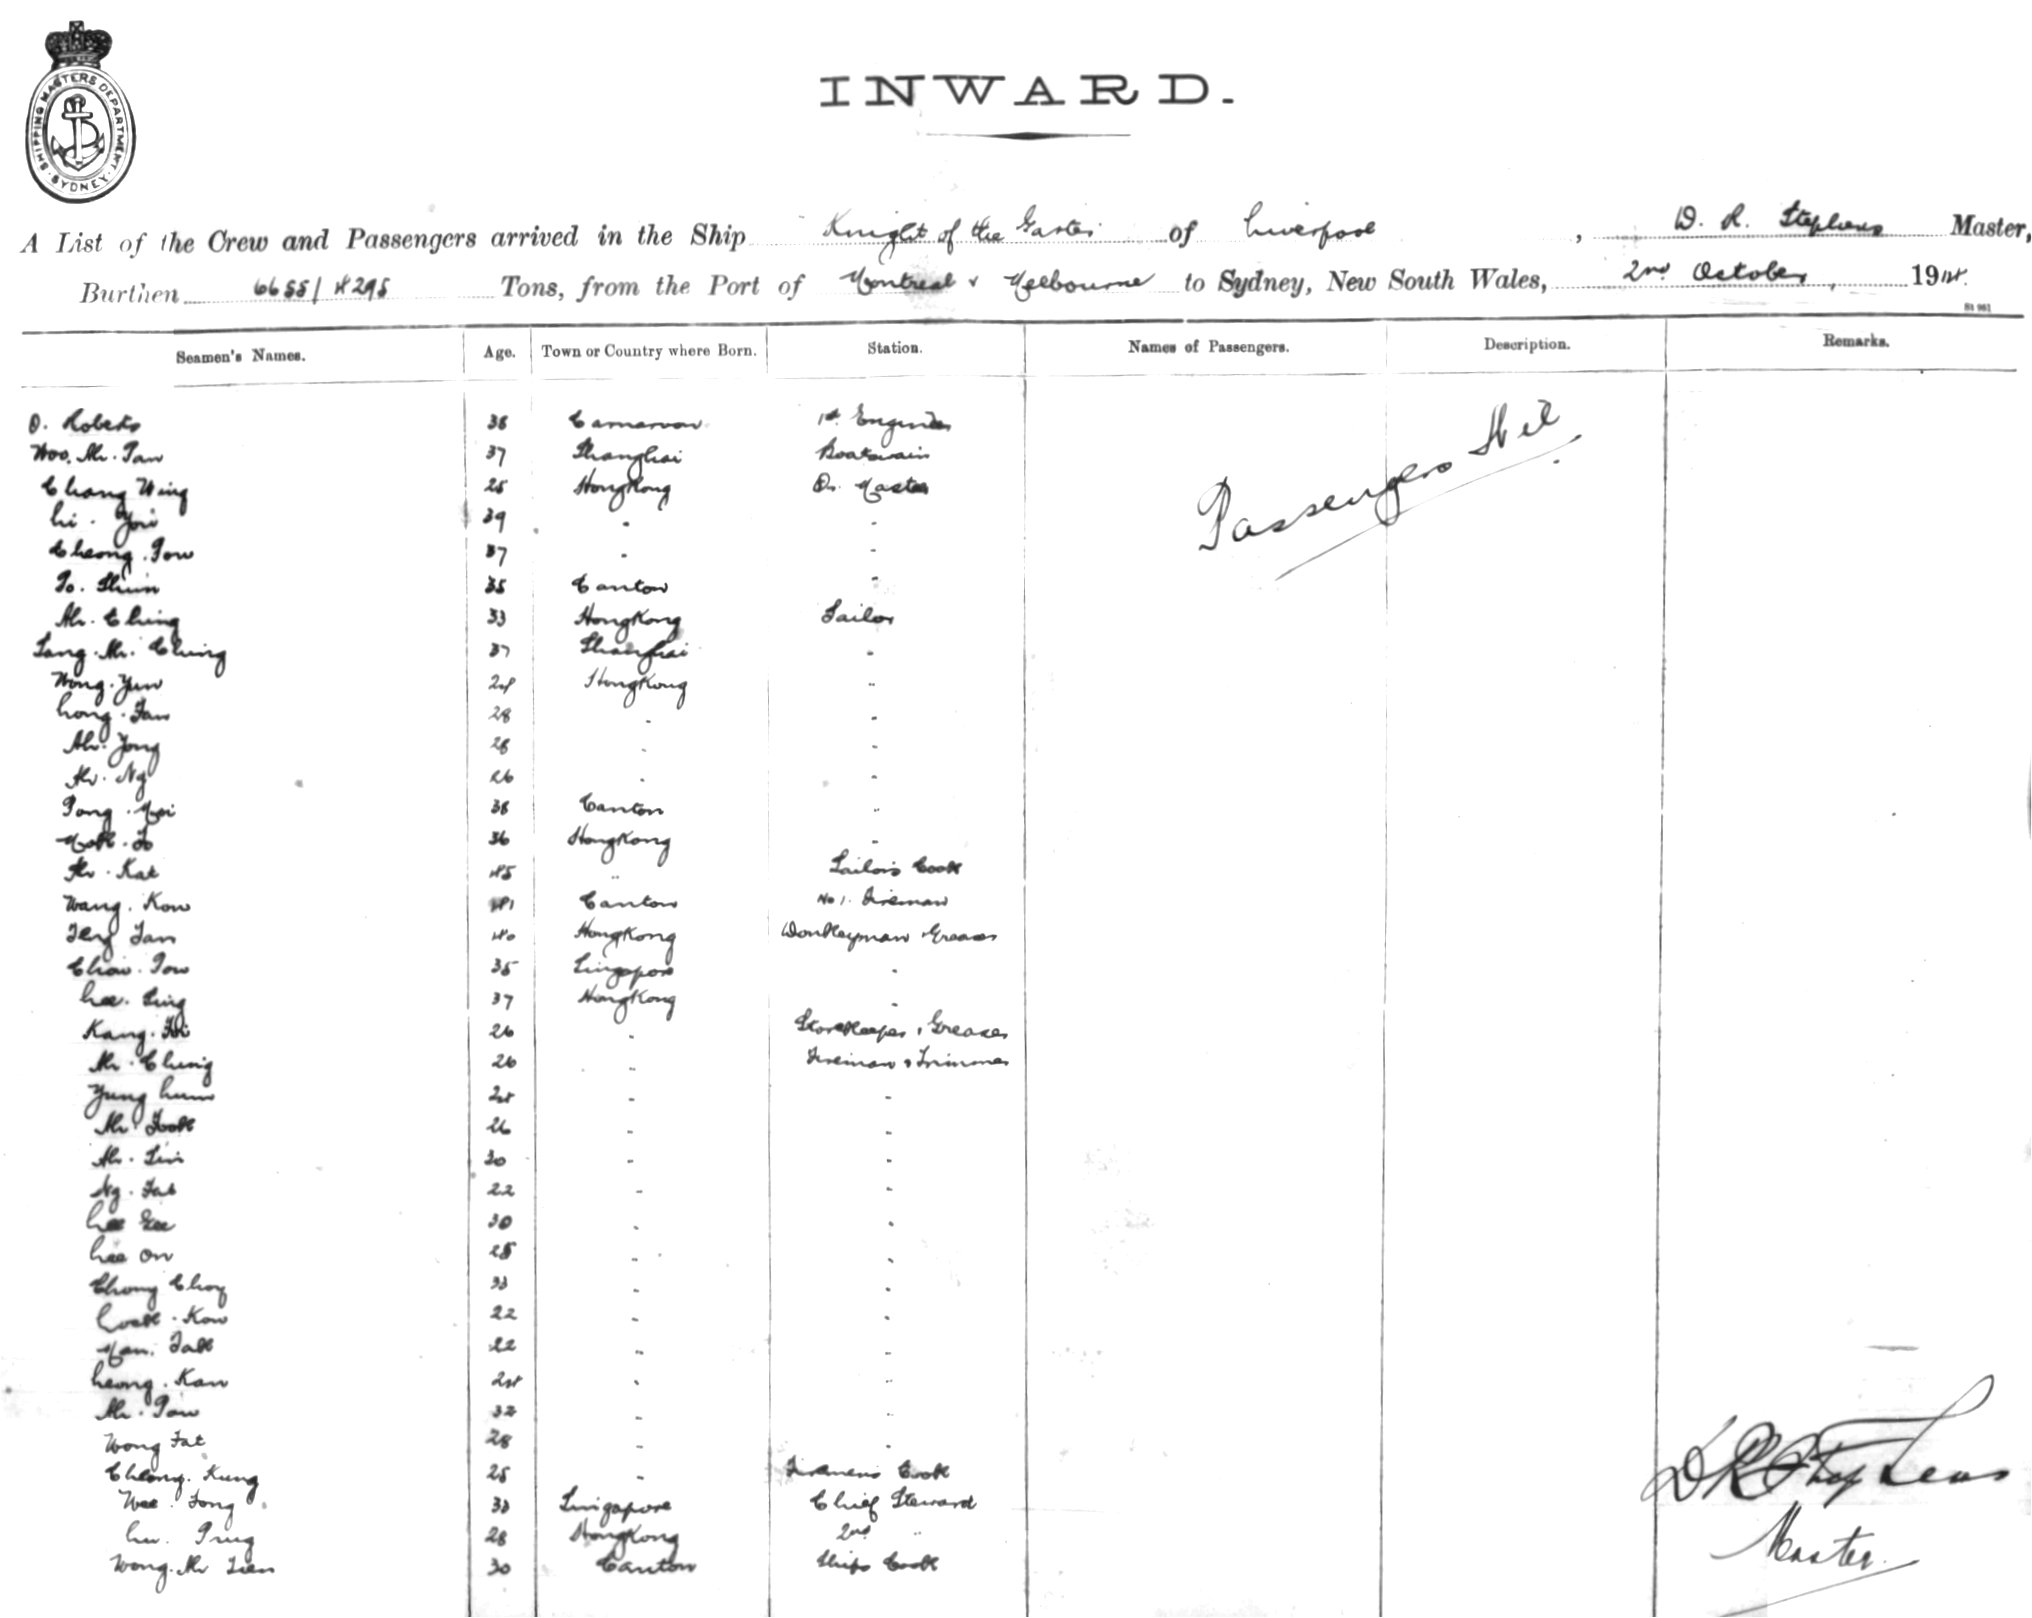 SHIPPING MASTERS DEPARTMENT SYDNEY
INWARD.
A List of the Crew and Passengers arrived in the Ship Knight of the Garter of Liverpool, D. R. Stephens Master,
Burthen 6655/4295 Tons, from the Port of Montreal & Melbourne to Sydney, New South Wales, 2nd October, 1914.
St 961
Seamen's Names. Age. Town or Country where Born. Station. Names of Passengers. Description. Remarks.
O. Roberts 38 Carnarvon 1st Engineer
Woo. Ah. Pan 37 Shanghai Boatswain
Passengers Nil
Chang Wing 25 HongKong Qr. Master
Li. You 39 " "
Cheong. Pow 37 " "
Po. Shun 35 Canton "
Ah. Ching 33 HongKong Sailor
Sang. Ah. Ching 37 Shanghai "
Wong. Yun 24 HongKong "
Long. Fan 28 " "
Ah. Yong 28 " "
Ah. Ng 26 " "
Pong. Moi 38 Canton "
Mok. Fo 36 HongKong "
Ah. Kat 45 " Sailors Cook
Wang. Kow 41 Canton No 1. Fireman
Fan 40 HongKong Donkeyman & Greaser
Chow. Pow 35 Singapore "
Lee. Sing 37 HongKong "
Kang. 26 " Storekeeper & Greaser
Ah. Chung 26 " Fireman & Trimmer
Yung Lum 24 " "
Ah Fook 26 " "
Ah. 30 " "
Ng. Fat 22 " "
Lee 30 " "
Lee On 25 " "
Chong Choy 33 " "
Kow 22 " "
Man. Fook 22 " "
Leong. Kan 24 " "
Ah. Pow 32 " "
Wong Fat 28 " "
Cheong. Kung 25 " Firemens Cook
Wee. Fong 33 Singapore Chief Steward
Ping 28 HongKong 2nd "
Wong. Ah Lien 30 Canton Ships Cook
D R Stephens
Master.